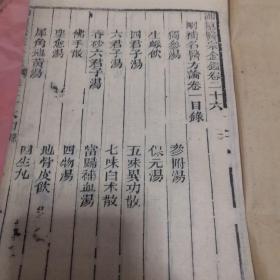 御纂醫宗金鑑卷二十六
刪補名醫方論卷一目錄
獨參湯
參附湯
生脈飲
保元湯
四君子湯
五味異功散
六君子湯
七味白朮散
香砂六君子湯
當歸補血湯
佛手散
四物湯
聖愈湯
地骨皮飲
犀角地黃湯
四生丸